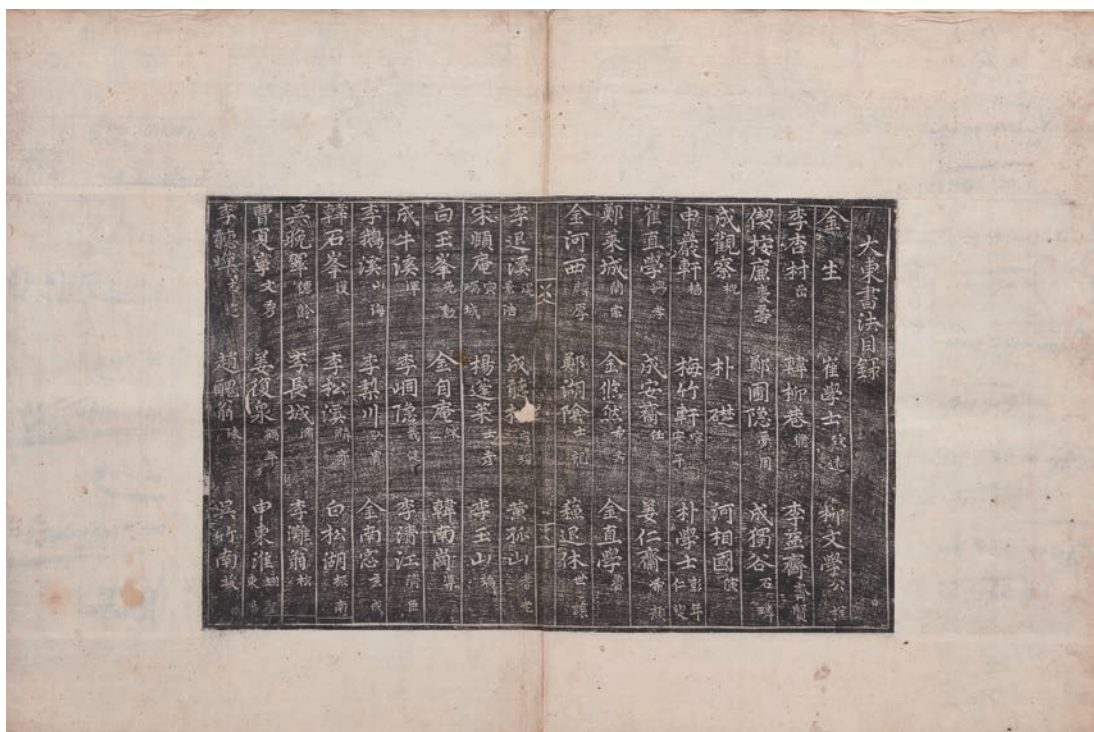 大東書法目錄
金 生 崔學士 致遠 柳文學 公權
李杏村 嵒 韓柳巷 脩 李益齋 齊賢
偰按廉 慶壽 鄭圃隐 夢周 成獨谷 石璘
成觀察 概 朴 礎 河相國 演
申巖軒 檣 梅竹軒 安平 朴學士 彭年 仁叟
崔直學 興孝 成安齋 任 姜仁齋 希顔
鄭萊城 蘭宗 金悠然 希壽 金直學 魯
金河西 麟厚 鄭湖陰 士龍 蘇退休 世讓
李退溪 滉 景浩 成聽松 守琛 黃孤山 耆老
宋頤庵 寅 礪城 楊蓬萊 士彥 李玉山 瑀
白玉峯 光勳 金自庵 絿 韓南崗
成牛溪 渾 李峒隐 義健 李淸江 濟臣
李鵝溪 山海 李梨川 弘冑 金南窓 玄成
韓石峯 濩 李松溪 麟奇 白松湖 振南
吳晚翠 億齡 李長城 李灘翁
曹夏寧 文秀 姜復泉 鶴年 申東淮 翊聖 東陽
李聽蟬 志定 趙醜翁 涑 吳竹南 竣